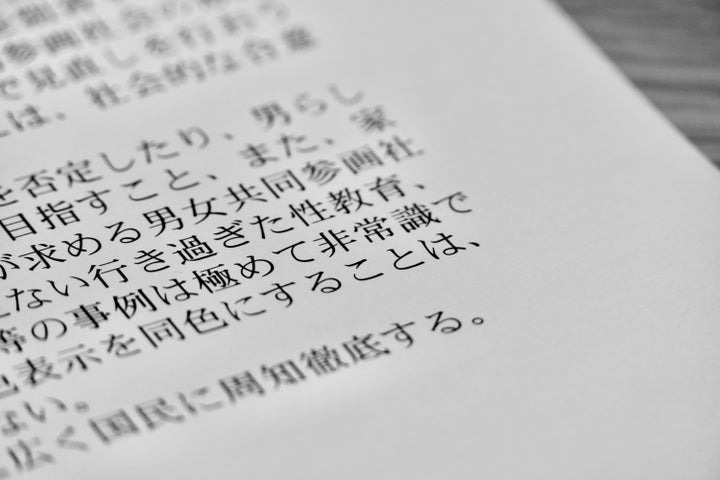 参画社会の
で見直しを行おう
は、社会的な合意
を否定したり、男らし
目指すこと、また、家
が求める男女共同参画社
ない行き過ぎた性教育、
等の事例は極めて非常識で
表示を同色にすることは、
ない。
広く国民に周知徹底する。